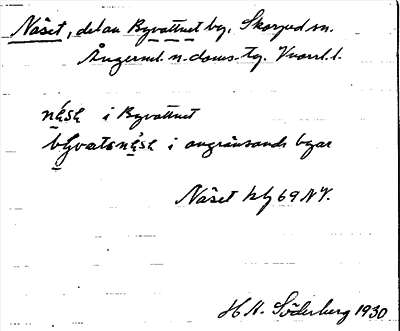 Näset, del av Byvattnet by, Skorped sn.
Ångerml. n. doms. tg. Vnorrl. l.
i Byvattnet
i angränsande byar
Näset hbl 69 NV.
H. A. Söderberg 1930